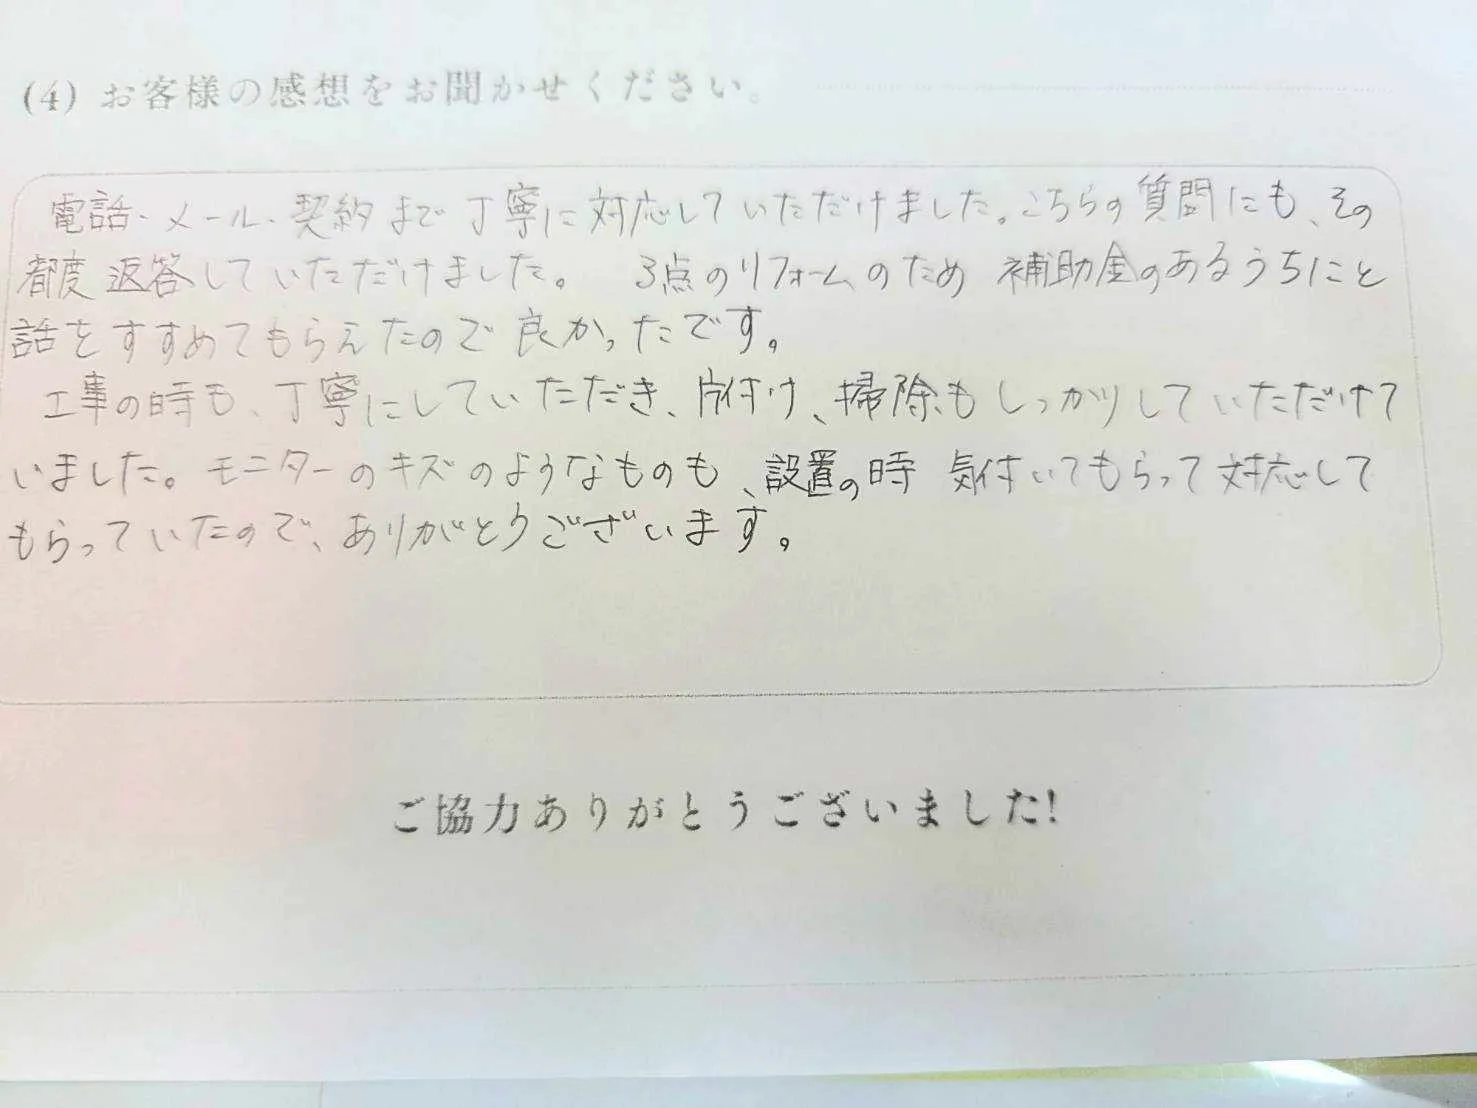 (4) お客様の感想をお聞かせください。
電話・メール・契約まで丁寧に対応していただけました。こちらの質問にも、その
都度返答していただけました。 3点のリフォームのため 補助金のあるうちにと
話をすすめてもらえたので良かったです。
工事の時も、丁寧にしていただき、片付け、掃除もしっかりしていただけて
いました。モニターのキズのようなものも、設置の時 気付いてもらって対応して
もらっていたので、ありがとうございます。
ご協力ありがとうございました!